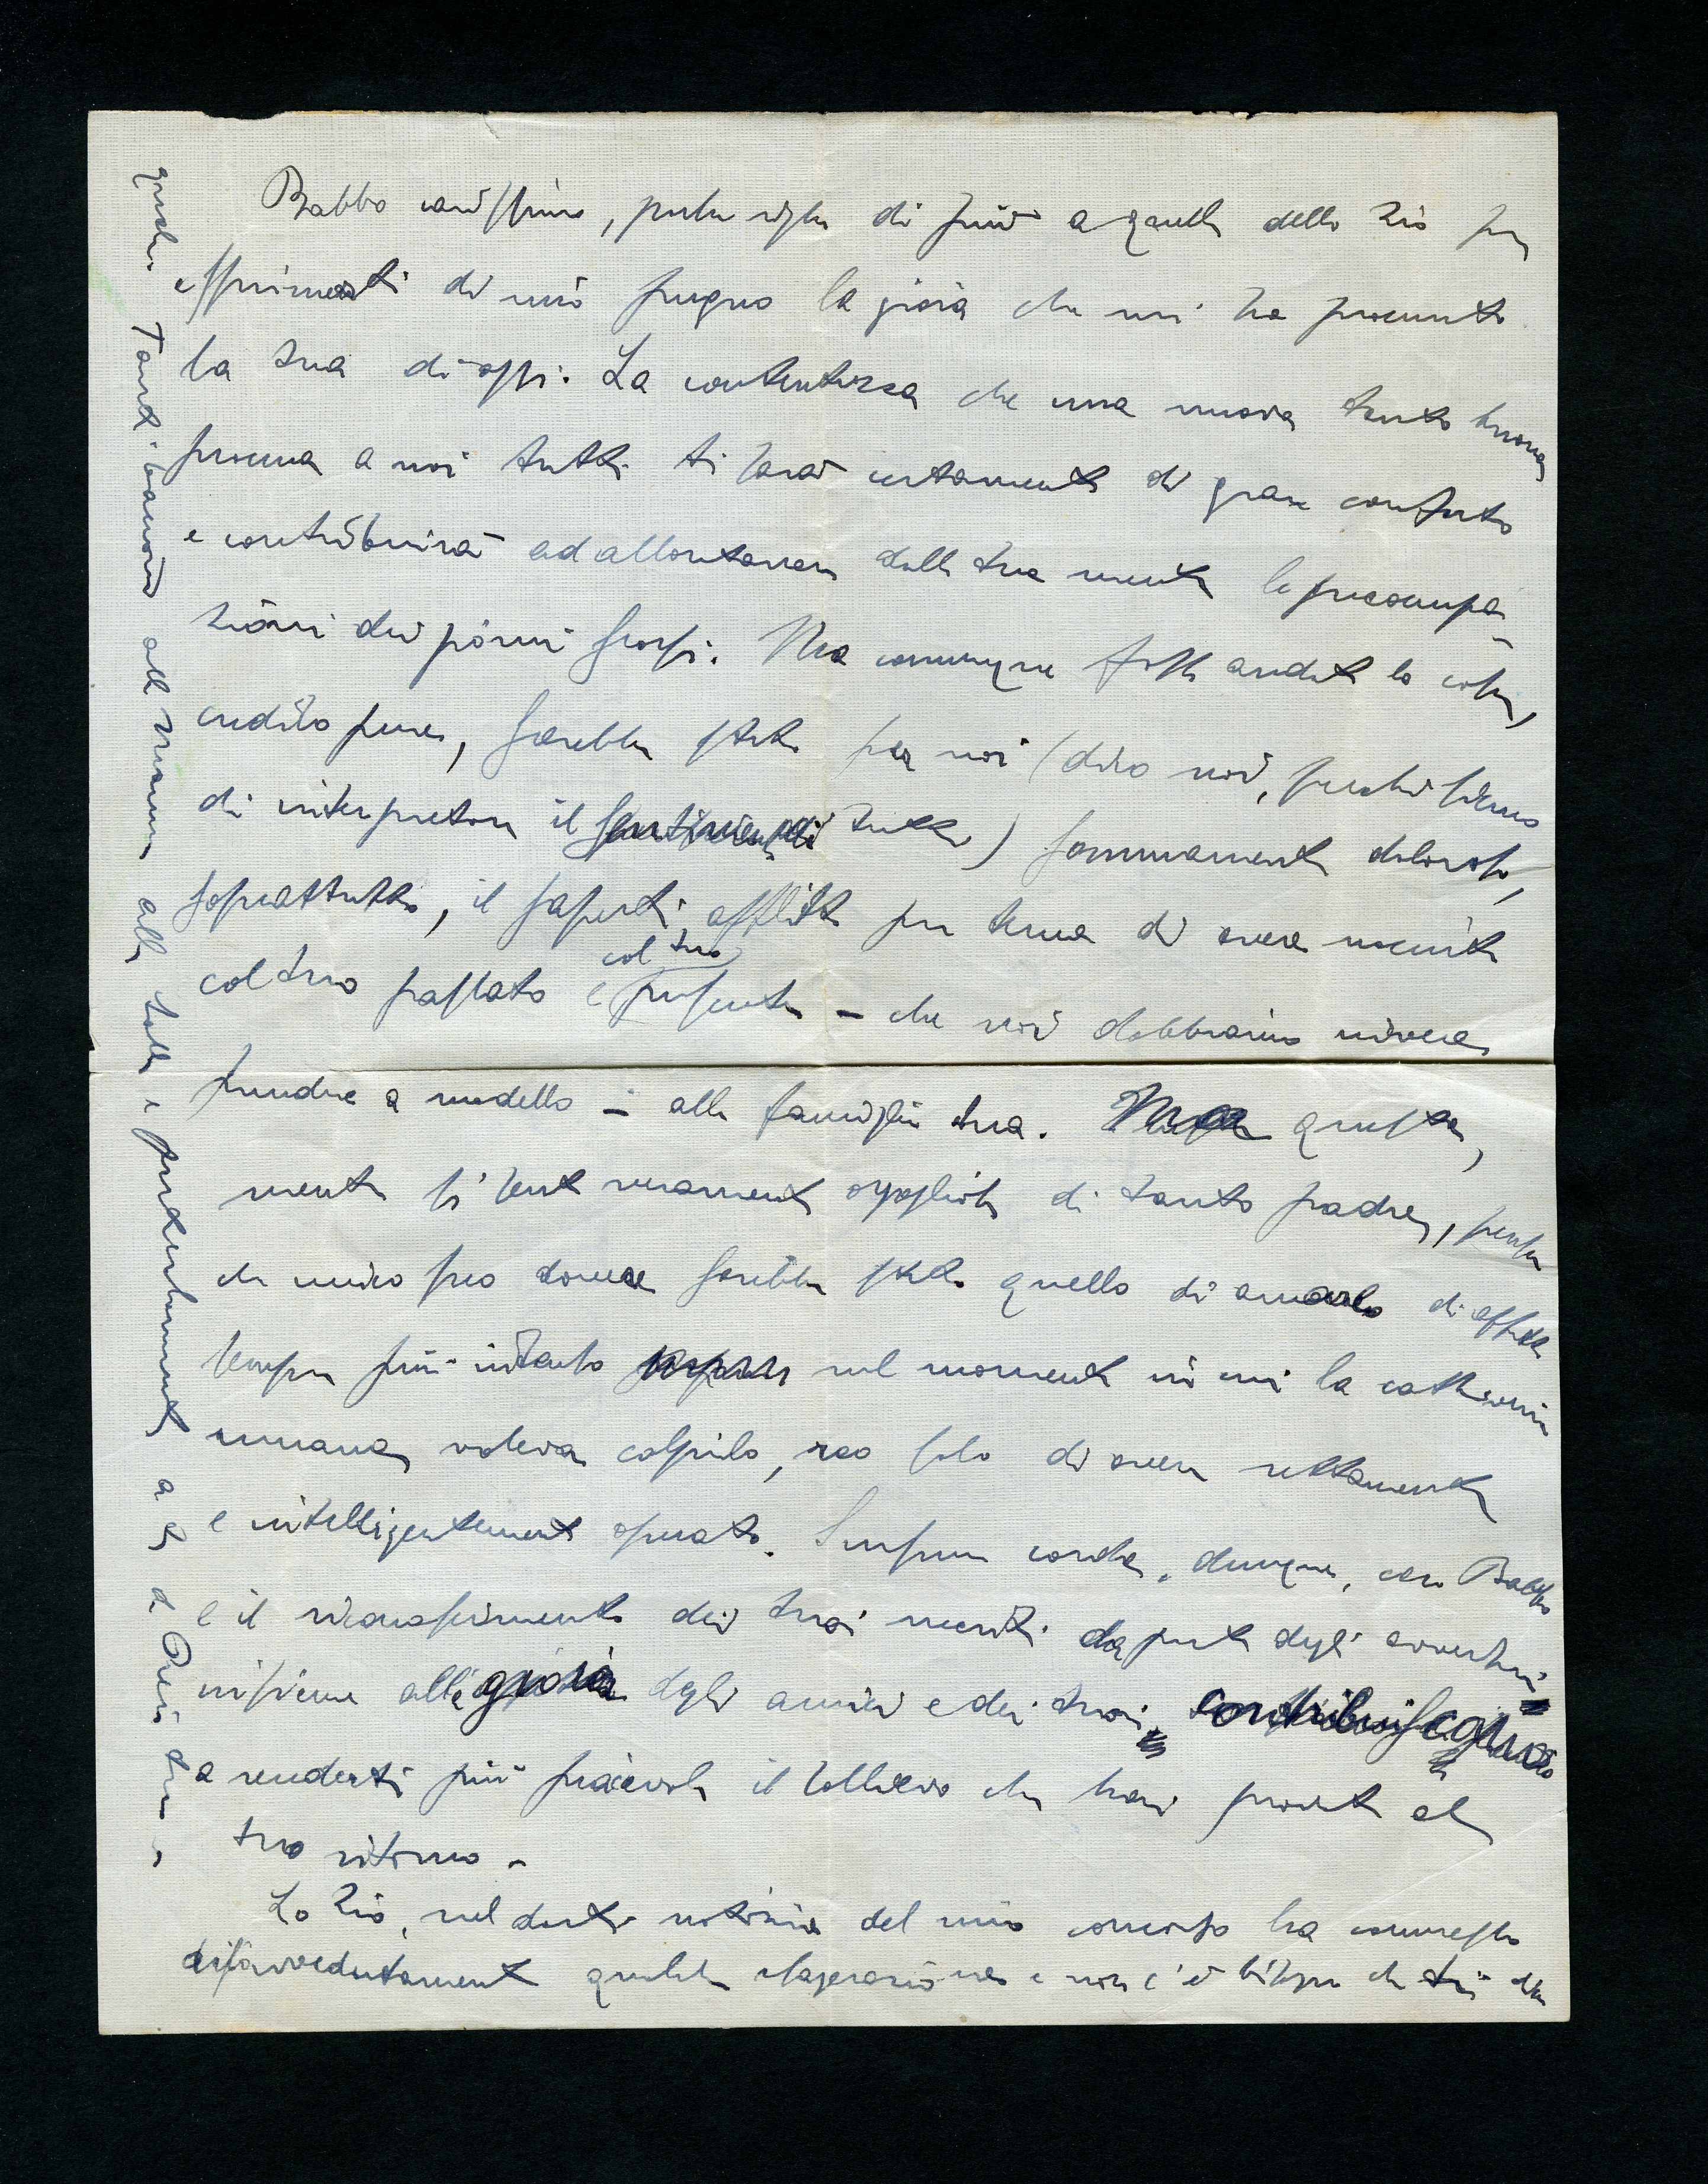 Babbo carissimo, poche righe di più a quelle dello Zio per
esprimerti di mio pugno la gioia che mi ha procurato
la tua di oggi. La contentezza che una nuova tanto buona
procura a noi tutti ti sarà certamente di gran conforto
e contribuirà ad allontanare dalla tua mente le preoccupa-
zioni dei giorni scorsi. Ma comunque fosse andata la cosa,
credilo pure, sarebbe stato per noi (dico noi, perchè sicuro
di interpretare il sentimento di tutti) sommamente doloroso,
soprattutto, il saperti afflitto per tema di avere nociuto
col tuo passato e col tuo presente – che noi dobbiamo invece
prendere a modello – alla famiglia tua. Ma questa,
mentre si sente veramente orgogliosa di tanto padre, pensa
che unico suo dovere sarebbe stato quello di amarlo di affetto
sempre più intenso nel momento in cui la cattiveria
umana voleva colpirlo, reo solo di avere rettamente
e intelligentemente operato. Sursum corda, dunque, caro Babbo
e il riconoscimento dei tuoi meriti da parte degli avversari
insieme alla gioia degli amici e dei tuoi contribuiscano
a renderti più piacevole il sollievo che hai provato al
tuo ritorno.
Lo Zio, nel darti notizia del mio concorso ha commesso
disavvedutamente qualche esagerazione e non c'è bisogno che tu
Tanti bacioni alla Mamma alla e particolarmente a te dal tuo